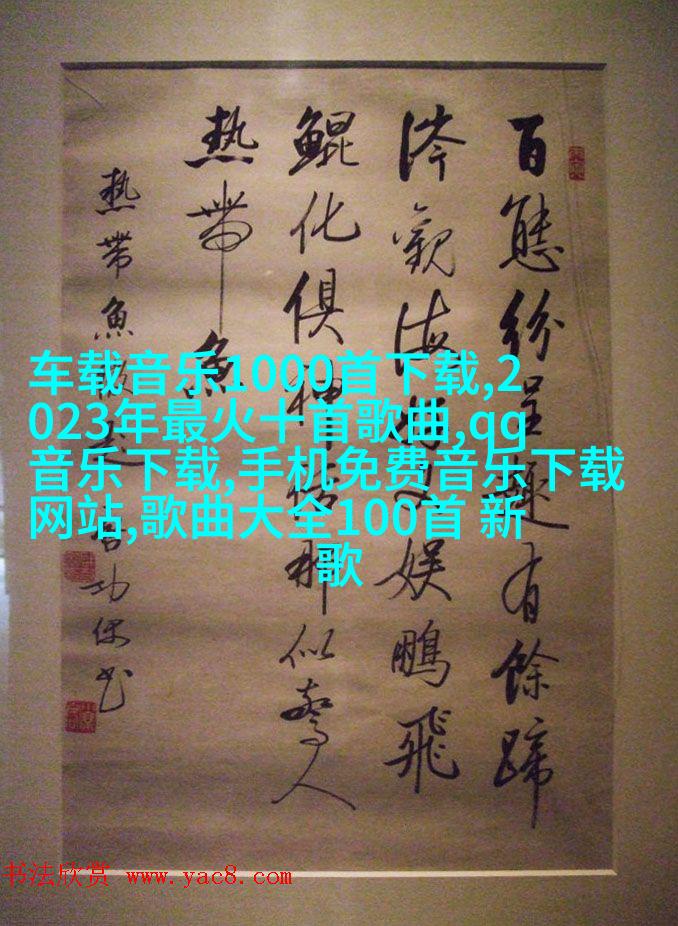 百態紛呈趣有餘蹄
涔觀海足娱鵬飛
鯤化俱神話那似驚人
熱帶魚
熱帶魚 启功
车载音乐1000首下载,2
023年最火十首歌曲,qq
音乐下载,手机免费音乐下载
网站,歌曲大全100首 新
歌
书法欣赏 www.yac8.com